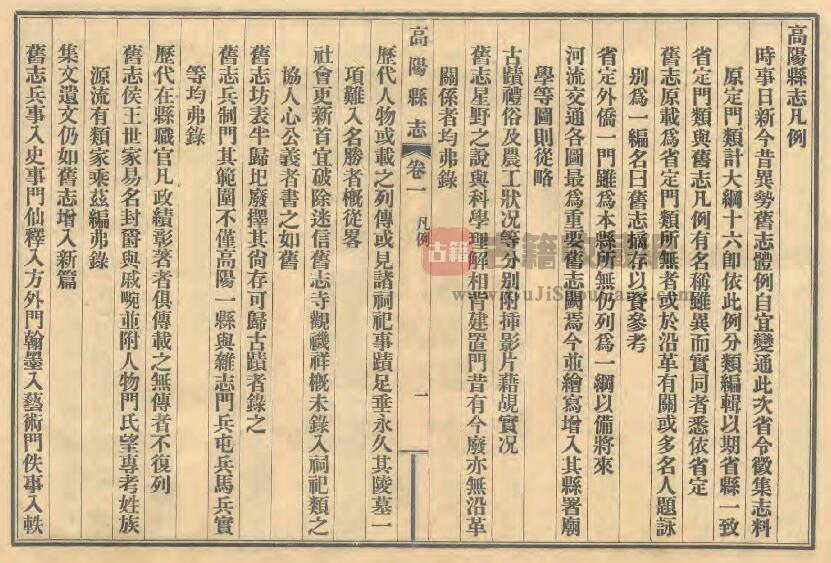 高陽縣志凡例
時事日新今昔異勢舊志體例自宜變通此次省令徵集志料
原定門類計大綱十六卽依此例分類編輯以期省縣一致
省定門類與舊志凡例有名稱雖異而實同者悉依省定
舊志原載爲省定門類所無者或於沿革有關或多名人題詠
别爲一編名曰舊志摘存以資參考
省定外僑一門雖爲本縣所無仍列爲一綱以備將來
河流交通各圖最爲重要舊志闕焉今並繪寫增入其縣署廟
學等圖則從略
古蹟禮俗及農工狀况等分别附挿影片藉覘實况
舊志星野之說與科學理解相背建置門昔有今廢亦無沿革
關係者均弗錄
高陽縣志
卷一
凡例
一
歷代人物或載之列傳或見諸祠祀事蹟足垂永久其陵墓一
項難入名勝者槪從畧
社會更新首宜破除迷信舊志寺觀禨祥槪未錄入祠祀類之
協人心公義者書之如舊
舊志坊表半歸圮廢擇其尙存可歸古蹟者錄之
舊志兵制門其範圍不僅高陽一縣與雜志門兵屯兵馬兵實
等均弗錄
歷代在縣職官凡政績彰著者俱傳載之無傳者不復列
舊志侯王世家易名封爵與戚畹並附人物門氏望專考姓族
源流有類家乘茲編弗錄
集文遺文仍如舊志增入新篇
舊志兵事入史事門仙釋入方外門翰墨入藝術門佚事入軼
古籍